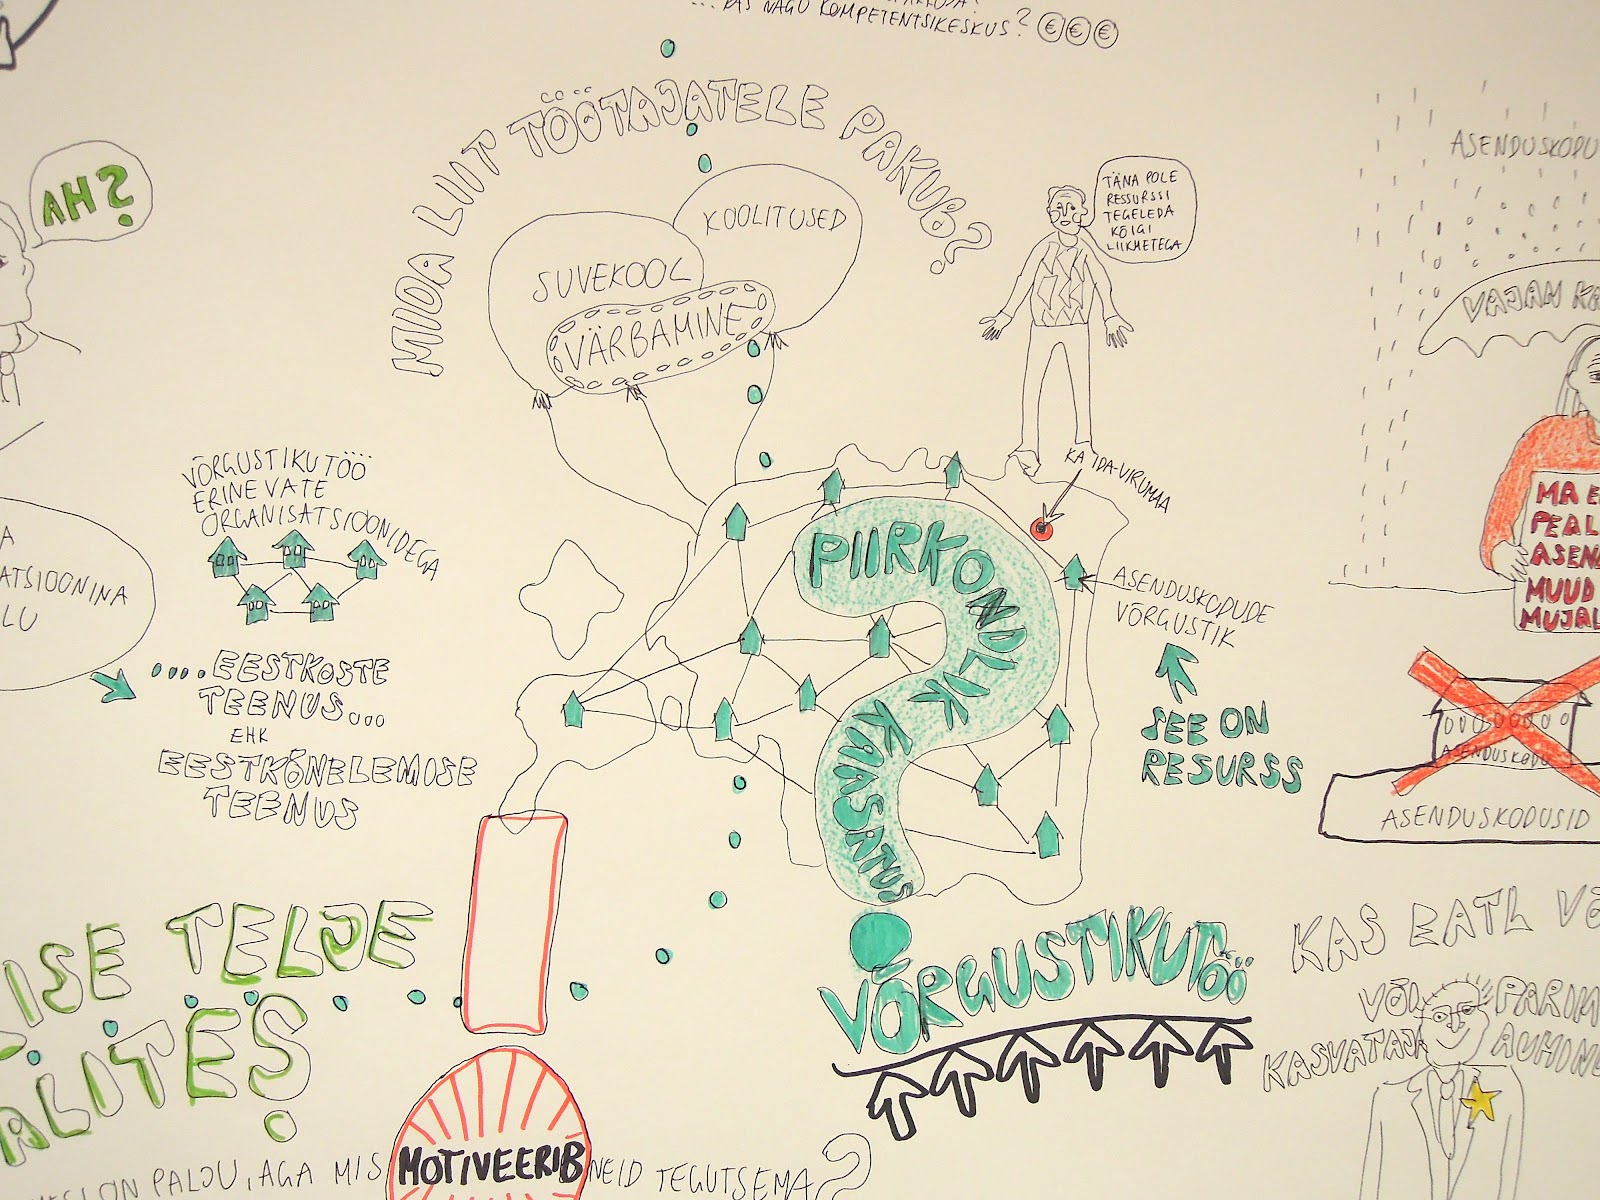 ...KAS NAGU KOMPETENTSIKESKUS? €€€
MIDA LIIT TÖÖTAJATELE PAKUB?
AH?
KOOLITUSED
SUVEKOOL
VÄRBAMINE
TÄNA POLE
RESSURSSI
TEGELEDA
KÕIGI
LIIKMETEGA
ASENDUSKODU
VAJAN
MA
PEAL
ASEN
MUUD
MUJAL
KA IDA-VIRUMAA
VÕRGUSTIKUTÖÖ
ERINEVATE
ORGANISATSIOONIDEGA
A
ATSIOONINA
LU
....EESTKOSTE
TEENUS...
EHK
EESTKÕNELEMISE
TEENUS
PIIRKONDLIK KAASATUS
ASENDUSKODUDE
VÕRGUSTIK
SEE ON
RESURSS
ASENDUSKODU
ASENDUSKODUSID
ISE TELJE
ALITES
VÕRGUSTIKUTÖÖ
KAS EATL VÕ
VÕI PARIM
KASVATAJA AUHIN
ON PALJU, AGA MIS MOTIVEERIB NEID TEGUTSEMA?